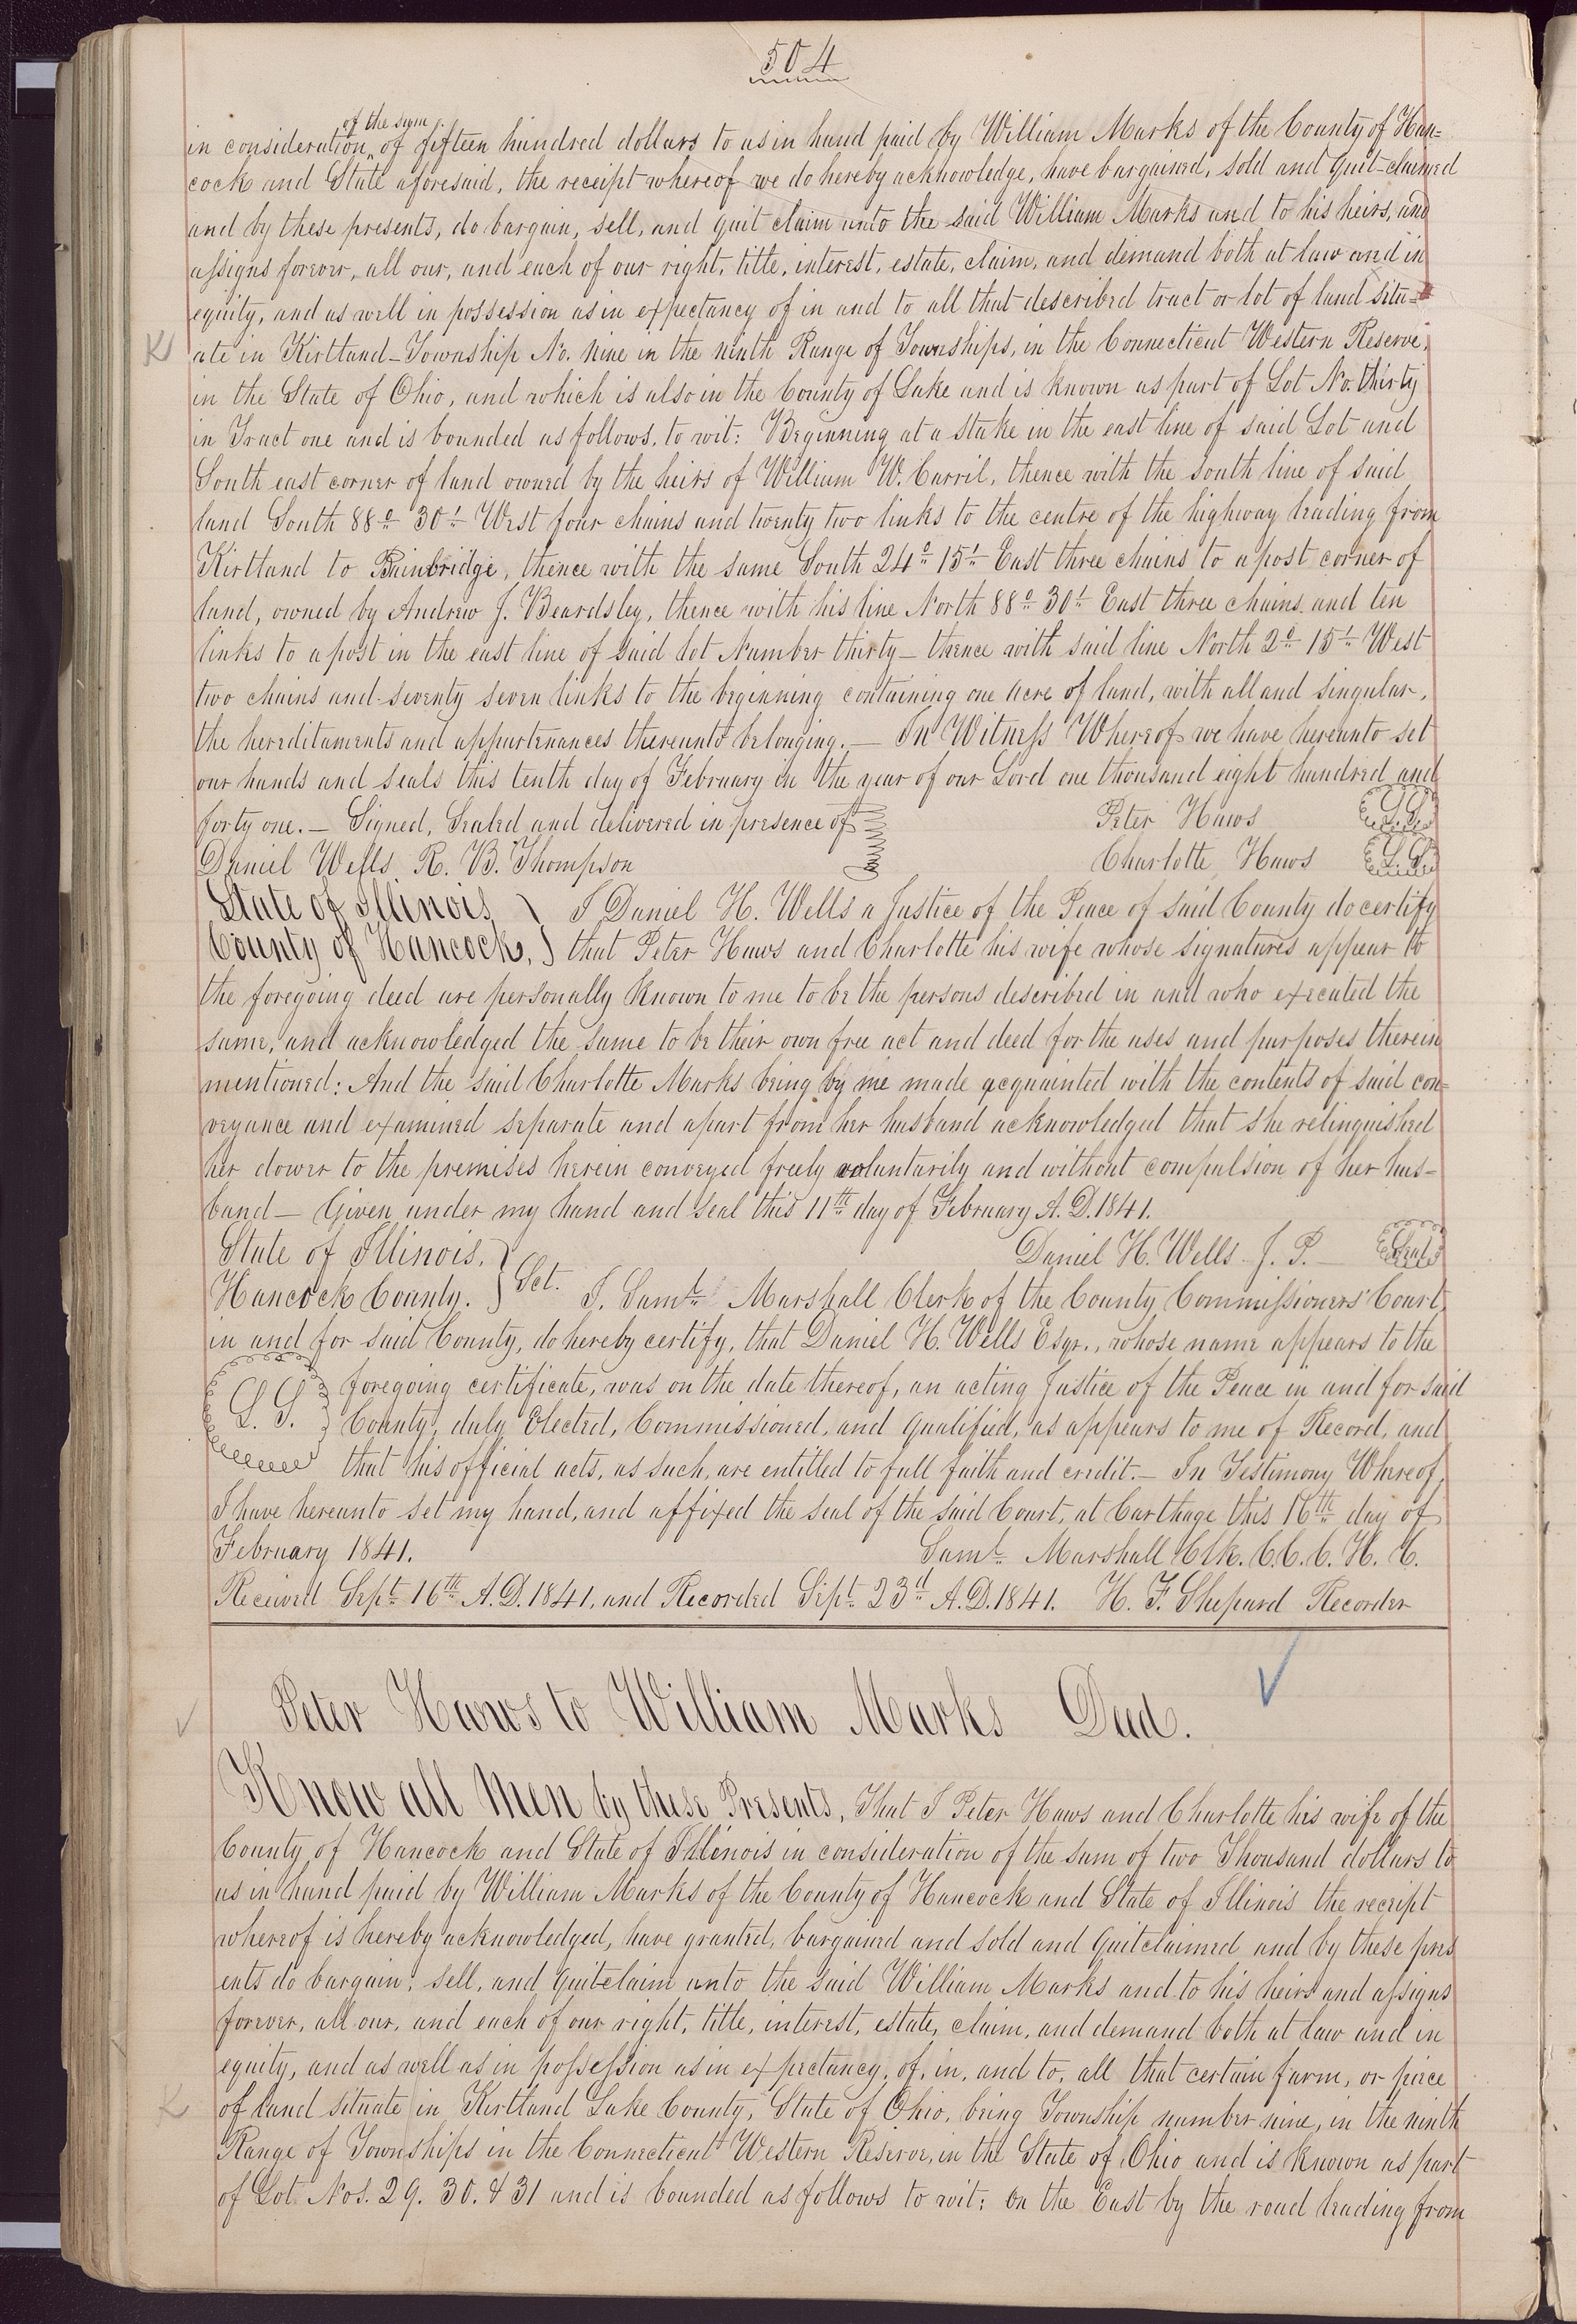 504
of the sum
in consideration of fifteen hundred dollars to us in hand paid by William Marks of the County of Han=
cock and State aforesaid, the receipt whereof we do hereby acknowledge, have bargained, sold and quit-claimed
and by these presents, do bargain, sell, and quit claim unto the said William Marks and to his heirs, and
assigns forever, all our, and each of our right, title, interest, estate, claim, and demand both at law and in
equity, and as well in possession as in expectancy of in and to all that described tract or lot of land situ=
K ate in Kirtland-Township No. nine in the ninth Range of Townships, in the Connecticut Western Reserve,
in the State of Ohio, and which is also in the County of Lake and is known as part of Lot No. thirty
in Tract one and is bounded as follows, to wit: Beginning at a stake in the east line of said Lot and
South east corner of land owned by the heirs of William W. Carril, thence with the south line of said
land South 88° 30' West four chains and twenty two links to the centre of the highway leading from
Kirtland to Bainbridge, thence with the same South 24° 15' East three chains to a post corner of
land, owned by Andrew J. Beardsley, thence with his line North 88° 30' East three chains and ten
links to a post in the east line of said lot Number thirty - thence with said line North 2° 15' West
two chains and seventy seven links to the beginning containing one acre of land, with all and singular,
the hereditaments and appurtenances thereunto belonging. — In Witness Whereof we have hereunto set
our hands and seals this tenth day of February in the year of our Lord one thousand eight hundred and
forty one. — Signed, Sealed and delivered in presence of Peter Haws L.S.
Daniel Wells, R. B. Thompson Charlotte Haws L.S.
State of Illinois } I Daniel H. Wells a Justice of the Peace of said County do certify
County of Hancock, } that Peter Haws and Charlotte his wife whose signatures appear to
the foregoing deed are personally known to me to be the persons described in and who executed the
same, and acknowledged the same to be their own free act and deed for the uses and purposes therein
mentioned: And the said Charlotte Marks being by me made acquainted with the contents of said con=
veyance and examined separate and apart from her husband acknowledged that she relinquished
her dower to the premises herein conveyed freely voluntarily and without compulsion of her hus-
band — Given under my hand and seal this 11th day of February A. D. 1841.
State of Illinois, } Daniel H. Wells J. P. — Seal
Hancock County. } Sct. I, Saml. Marshall Clerk of the County Commissioners' Court,
in and for said County, do hereby certify, that Daniel H. Wells Esqr., whose name appears to the
L. S. foregoing certificate, was on the date thereof, an acting Justice of the Peace in and for said
County, duly Elected, Commissioned, and qualified, as appears to me of Record, and
that his official acts, as such, are entitled to full faith and credit. — In Testimony Whereof,
I have hereunto set my hand, and affixed the seal of the said Court, at Carthage this 16th day of
February 1841. Saml. Marshall Clk. C.C.C. H. C.
Received Sept. 16th A.D. 1841, and Recorded Sept. 23d A.D. 1841. H. F. Shepard Recorder
Peter Haws to William Marks Deed.
Know all Men by these Presents, That I Peter Haws and Charlotte his wife of the
County of Hancock and State of Illinois in consideration of the sum of two Thousand dollars to
us in hand paid by William Marks of the County of Hancock and State of Illinois the receipt
whereof is hereby acknowledged, have granted, bargained and sold and Quitclaimed and by these pres
ents do bargain, sell, and quitclaim unto the said William Marks and to his heirs and assigns
forever, all our, and each of our right, title, interest, estate, claim, and demand both at law and in
equity, and as well as in possession as in expectancy, of, in, and to, all that certain farm, or piece
K of land situate in Kirtland Lake County, State of Ohio, being Township number nine, in the ninth
Range of Townships in the Connecticut Western Reserve, in the State of Ohio and is known as part
of Lot Nos. 29. 30. & 31 and is bounded as follows to wit: On the East by the road leading from